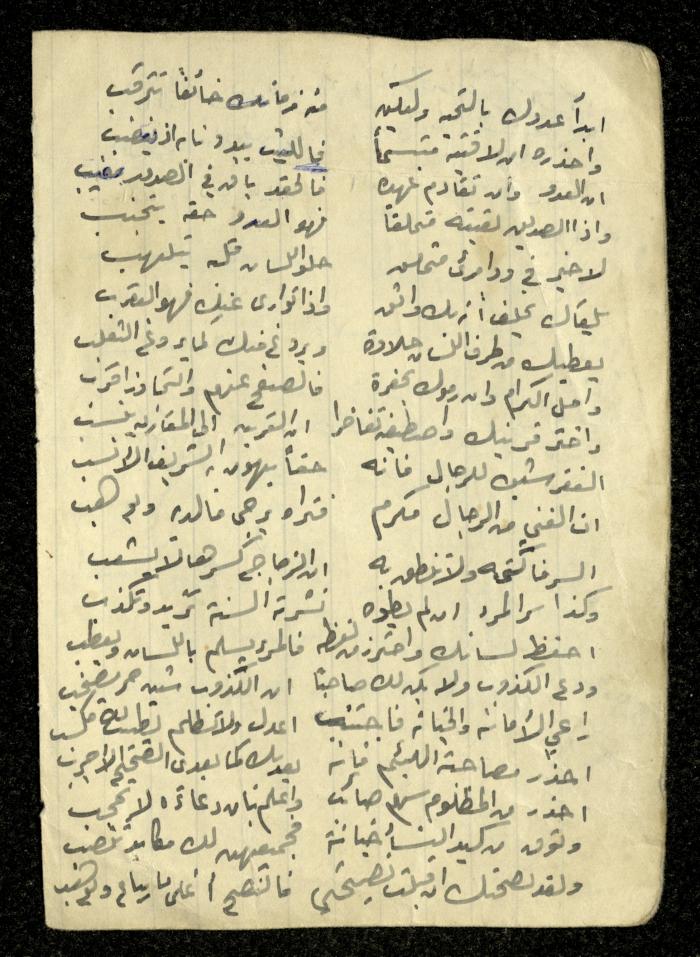 ابدأ عدوك بالتحيه ولتكن منه زمانك خائفاً تترقب
واحذره ان لاقيته متبسماً فالليث يبدو نابه اذ يغضب
ان العدو وان تقادم عهده فالحقد باق في الصدور مغيب
واذا الصديق لقيته متملقاً فهو العدو حقه يتجنب
لا خير في ود امرئ متملق حلو اللسان قلبه يتلهب
يلقاك يحلف أنه بك واثق واذا توارى عنك فهو العقرب
يعطيك من طرف اللسان حلاوة ويروغ منك كما يروغ الثعلب
وصل الكرام وان رموك بجفوة فالصفح عنهم والتجاوز اقرب
واختر قرينك واصطفيه تفاخرا ان القرين الى المقارن ينسب
الفقر شين للرجال فانه حقاً يهون به الشريف الأنسب
ان الغني من الرجال مكرم فتراه يرجى مالديه ويرهب
السر فاكتمه ولا تنطق به ان الزجاجة كسرها لا يشعب
وكذا سر المرء ان لم يطوه نشرته السنة تزيد وتكذب
احفظ لسانك واحترز من لفظه فالمرء يسلم باللسان ويعطب
ودع الكذوب ولا يكن لك صاحبًا ان الكذوب شين حر يصحب
راعي الأمانه والخيانه فاجتنب اعدل ولا تظلم يطيب مكسب
احذر مصاحبة اللئيم فإنه يعديك كما يعدى الصحيح الاجرب
احذر من المظلوم سهم صائب واعلم بان دعاؤه لا يحجب
وتوق من كيد النسأ خيانة فجميعهن لك مكايد تنصب
ولقد نصحتك ان قبلت نصيحتي فالنصح أغلى ما يباع ويوهب